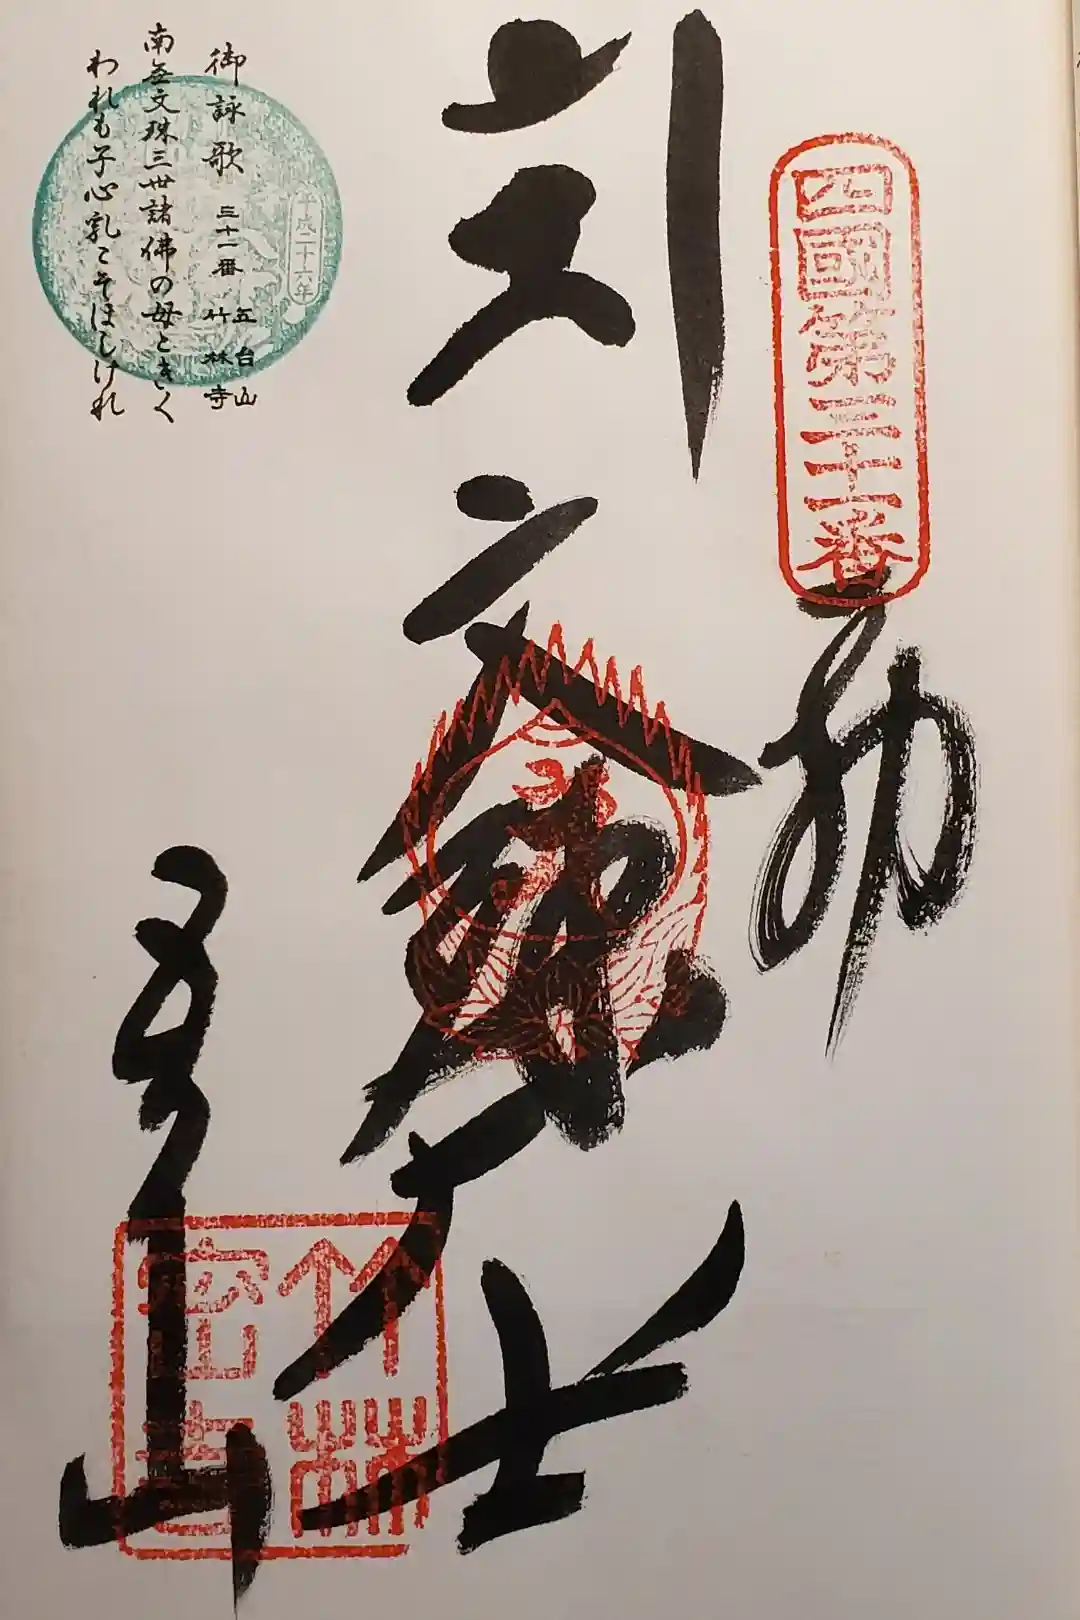 四國第三十一番
文殊大士
五台山
竹林
御詠歌 三十一番 五台山 竹林寺
南無文殊三世諸佛の母ときく
われも子心乳こそほしけれ
平成二十六年